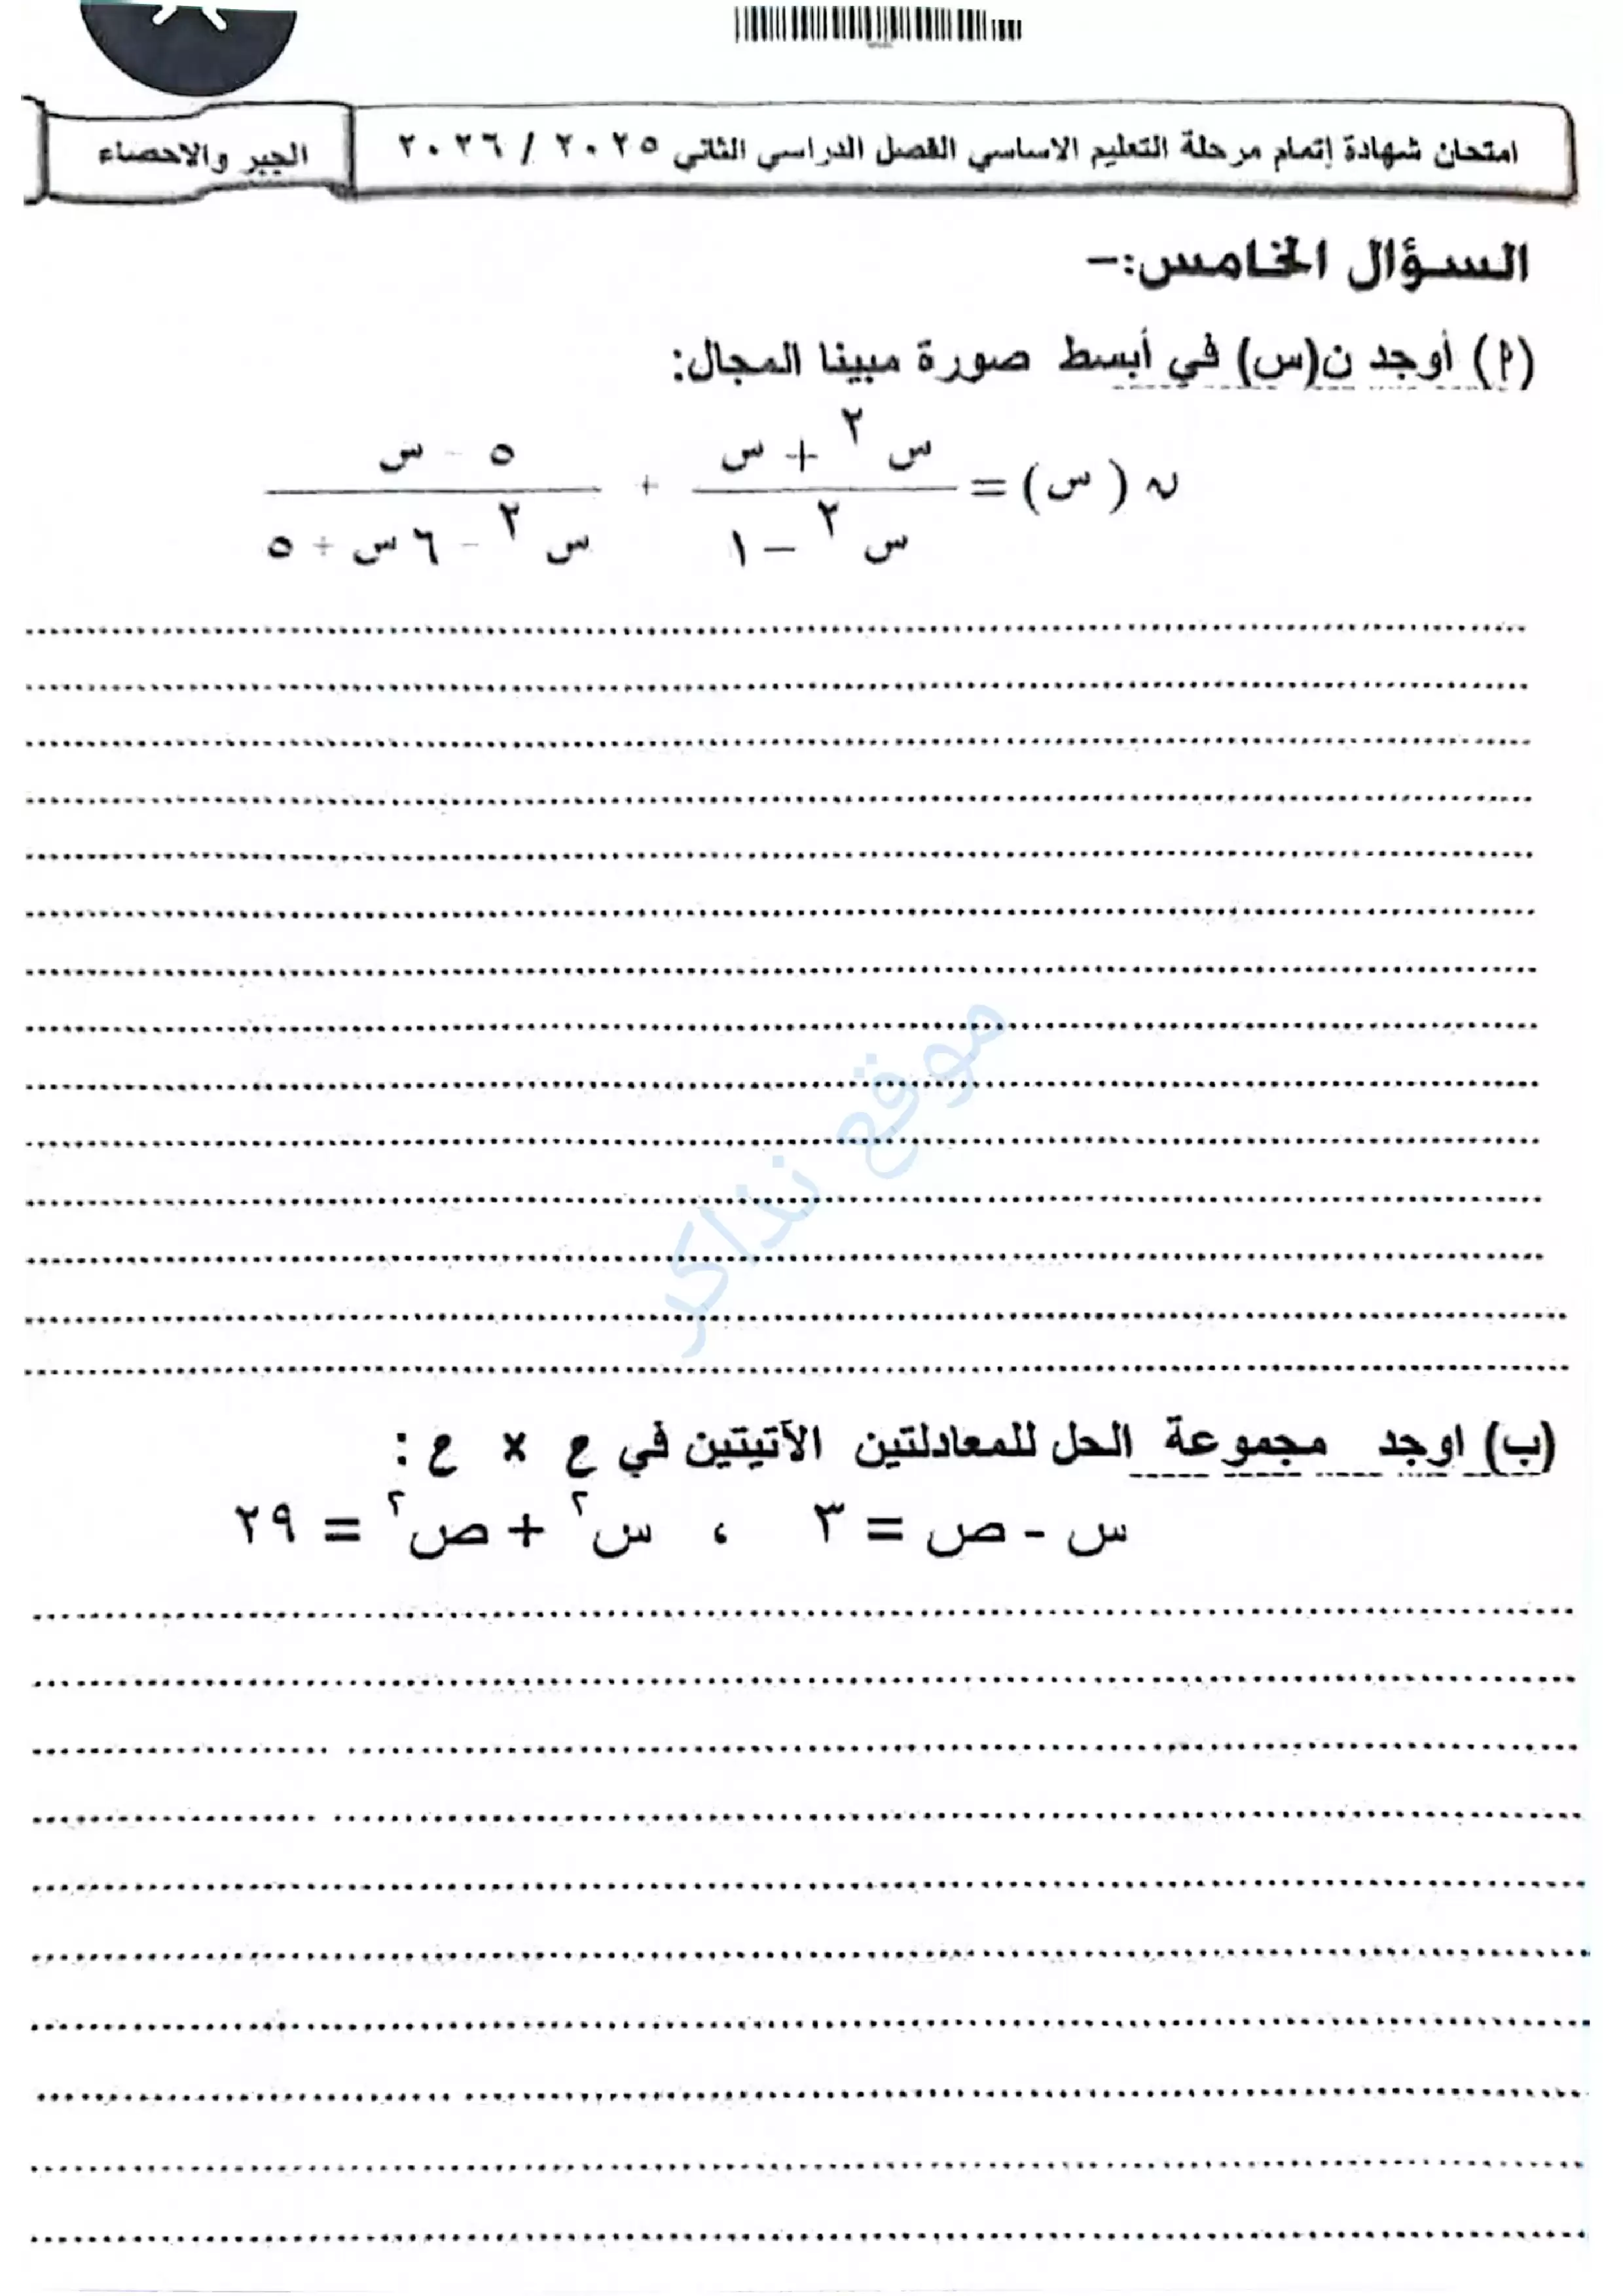 امتحان شهادة إتمام مرحلة التعليم الاساسي الفصل الدراسي الثاني ٢٠٢٥ / ٢٠٢٦
الجبر والاحصاء
السؤال الخامس:-
(أ) أوجد ن(س) في أبسط صورة مبينا المجال:
ن (س) = (س٢ + س) / (س٢ - ١) + (٥ - س) / (س٢ - ٦س + ٥)
موقع نذاكر
(ب) اوجد مجموعة الحل للمعادلتين الآتيتين في ح × ح :
س - ص = ٣ ، س٢ + ص٢ = ٢٩